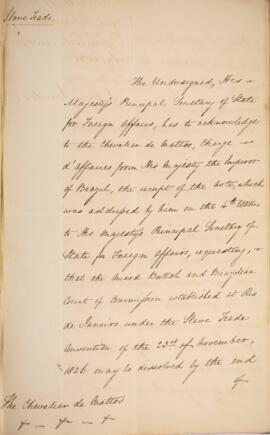 Slave Trade.
The Undersigned, His
Majesty's Principal Secretary of State
for Foreign Affairs, has to acknowledge
to the Chevalier de Mattos, Chargé
d'affaires from His Majesty the Emperor
of Brazil, the receipt of the note, which
was addressed by him on the 4th Ultimo
to His Majesty's Principal Secretary of
State for Foreign Affairs, requesting,
that the mixed British and Brazilian
Court of Commission established at Rio
de Janeiro under the Slave Trade
Convention of the 23rd of November,
1826. may be dissolved by the end
of
The Chevalier de Mattos